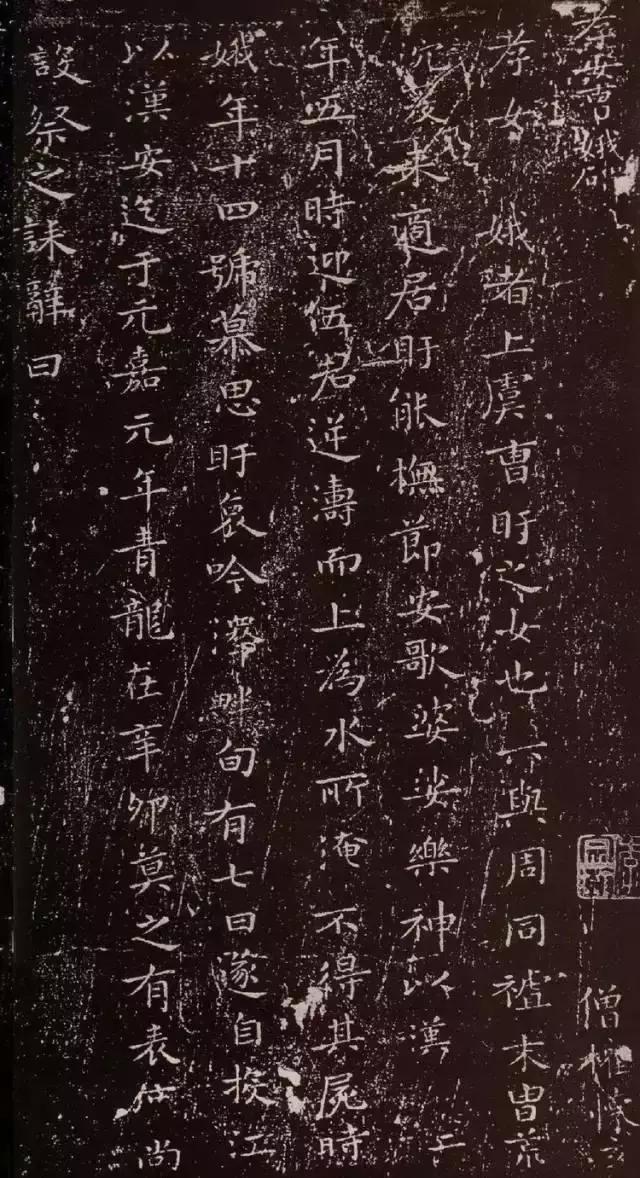 孝女曹娥碑
孝女娥者上虞曹盱之女也與周同祖末胄荒
沉爰來適居盱能撫節安歌婆娑樂神以漢二
年五月時迎伍君逆濤而上為水所淹不得其屍時
娥年十四號慕思盱哀吟澤畔旬有七日遂自投江
以漢安迄于元嘉元年青龍在辛卯莫之有表度尚
設祭之誄辭曰
僧權